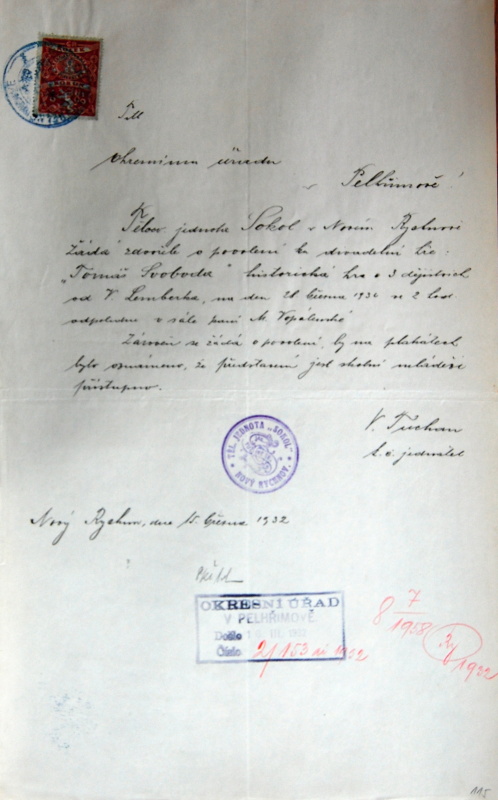 Okresnímu úřadu
v Pelhřimově!
Těloc. jednota Sokol v Novém Rychnově
žádá zdvořile o povolení ku divadelní hře:
„Tomáš Svoboda" historická hra o 3 dějstvích
od V. Lemberka, na den 28. února 193 ve 2 hod.
odpoledne v sále paní M. Vopálenské
Zároveň se žádá o povolení, by na plakátech
bylo oznámeno, že představení jest školní mládeži
přístupno.
V. Tuchan
t. č. jednatel
TĚL. JEDNOTA „SOKOL"
NOVÝ RYCHNOV.
Nový Rychnov, dne 15. února 1932
OKRESNÍ ÚŘAD
V PELHŘIMOVĚ
Došlo
Číslo 21153 ai 1932
8 7
1958
1932
115